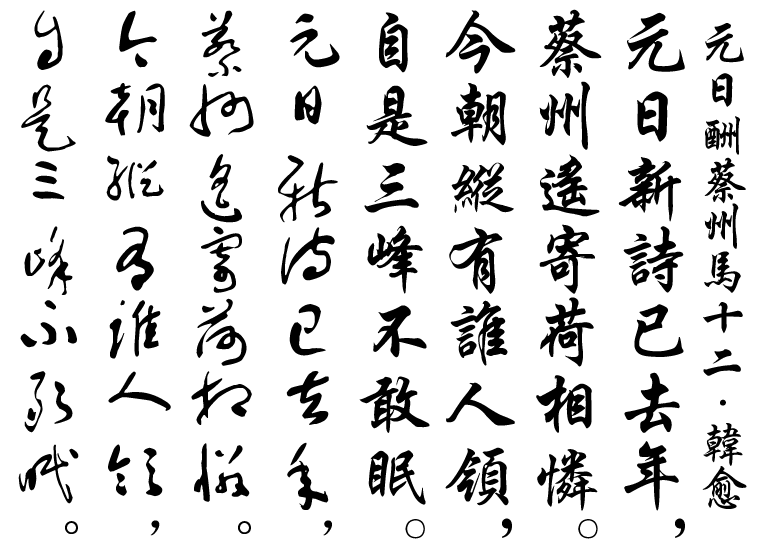 元日酬蔡州馬十二・韓愈
元日新詩已去年，
蔡州遙寄荷相憐。
今朝縱有誰人領，
自是三峰不敢眠。
元日新詩已去年，
蔡州遙寄荷相憐。
今朝縱有誰人領，
自是三峰不敢眠。